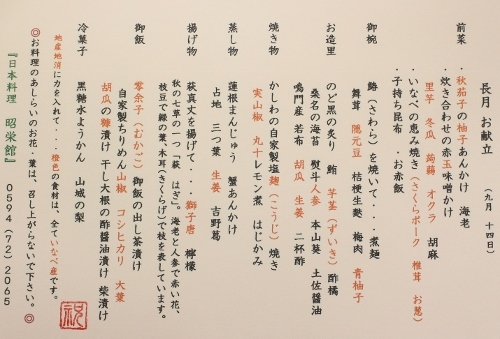 長月 お献立
(九月 十四日)
前菜
・秋茄子の柚子あんかけ 海老
・炊き合わせの赤玉味噌かけ
里芋 冬瓜 蒟蒻 オクラ 胡麻
・いなべの恵み焼き(さくらポーク 椎茸 お葱)
・子持ち昆布 ・お赤飯
御椀
鰆(さわら)を焼いて・・・煮麺
舞茸 隠元豆 桔梗生麩 梅肉 青柚子
お造里
のど黒の炙り 鮪 芋茎(ずいき) 酢橘
桑名の海苔 熨斗人参 本山葵 土佐醤油
鳴門産 若布 胡瓜 生姜 二杯酢
焼き物
かしわの自家製塩麹(こうじ)焼き
実山椒 丸十レモン煮 はじかみ
蒸し物
蓮根まんじゅう 蟹あんかけ
占地 三つ葉 生姜 吉野葛
揚げ物
萩真丈を揚げて・・・獅子唐 檸檬
秋の七草の一つ「萩 はぎ」。海老と人参で赤い花、
枝豆で緑の葉、木耳(きくらげ)で枝を表しています。
御飯
零余子(むかご) 御飯の出し茶漬け
自家製ちりめん山椒 コシヒカリ 大葉
胡瓜の糠漬け 干し大根の酢醤油漬け 柴漬け
冷菓子
黒糖水ようかん 山城の梨
地産地消に力を入れて・・・橙色の食材は、全ていなべ産です。
◎お料理のあしらいのお花・葉は、召し上がらないで下さい。◎
『日本料理 昭栄館』 0594(72)2065
祝